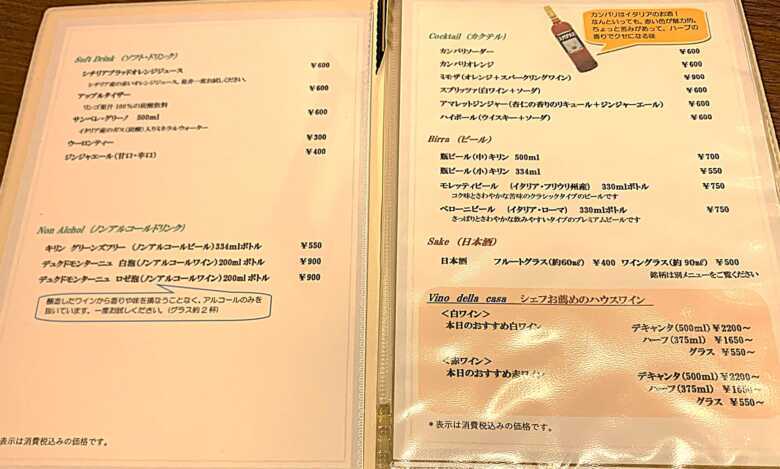 Soft Drink (ソフト・ドリンク)
シチリアブラッドオレンジジュース ￥600
シチリア産の赤いオレンジジュース、是非一度お試しください。
アップルタイザー ￥600
リンゴ果汁100%の炭酸飲料
サンペレ・グリーノ 500ml ￥600
イタリア産のガス(炭酸)入りミネラルウォーター
ウーロンティー ￥300
ジンジャエール(甘口・辛口) ￥400
Non Alchol (ノンアルコールドリンク)
キリン グリーンズフリー (ノンアルコールビール)334mlボトル ￥550
デュクドモンターニュ 白泡(ノンアルコールワイン)200mlボトル ￥900
デュクドモンターニュ ロゼ泡(ノンアルコールワイン)200mlボトル ￥900
醸造したワインから香りや味を損なうことなく、アルコールのみを
抜いています。一度お試しください。(グラス約2杯)
表示は消費税込みの価格です。
カンパリはイタリアのお酒!
なんといっても、赤い色が魅力的。
ちょっと苦みがあって、ハーブの
香りでクセになる味
Cocktail (カクテル)
カンパリソーダー ￥600
カンパリオレンジ ￥600
ミモザ (オレンジ+スパークリングワイン) ￥900
スプリッツァ(白ワイン+ソーダ) ￥600
アマレットジンジャー(杏仁の香りのリキュール+ジンジャーエール) ￥600
ハイボール(ウイスキー+ソーダ) ￥600
Birra (ビール)
瓶ビール(中)キリン 500ml ￥700
瓶ビール(小)キリン 334ml ￥550
モレッティビール (イタリア・フリウリ州産) 330mlボトル ￥750
コク味とさわやかな苦味のクラシックタイプのビールです
ペローニビール (イタリア・ローマ) 330mlボトル ￥750
さっぱりとさわやかな飲みやすいタイプのプレミアムビールです
Sake (日本酒)
日本酒 フルートグラス(約60㎖) ￥400 ワイングラス(約 90㎖) ￥500
銘柄は別メニューをご覧ください
Vino della casa シェフお薦めのハウスワイン
<白ワイン>
本日のおすすめ白ワイン デキャンタ(500ml)￥2200～
ハーフ(375ml) ￥1650～
グラス ￥550～
<赤ワイン>
本日のおすすめ赤ワイン デキャンタ(500ml)￥2200～
ハーフ(375ml) ￥1650～
グラス ￥550～
*表示は消費税込みの価格です。